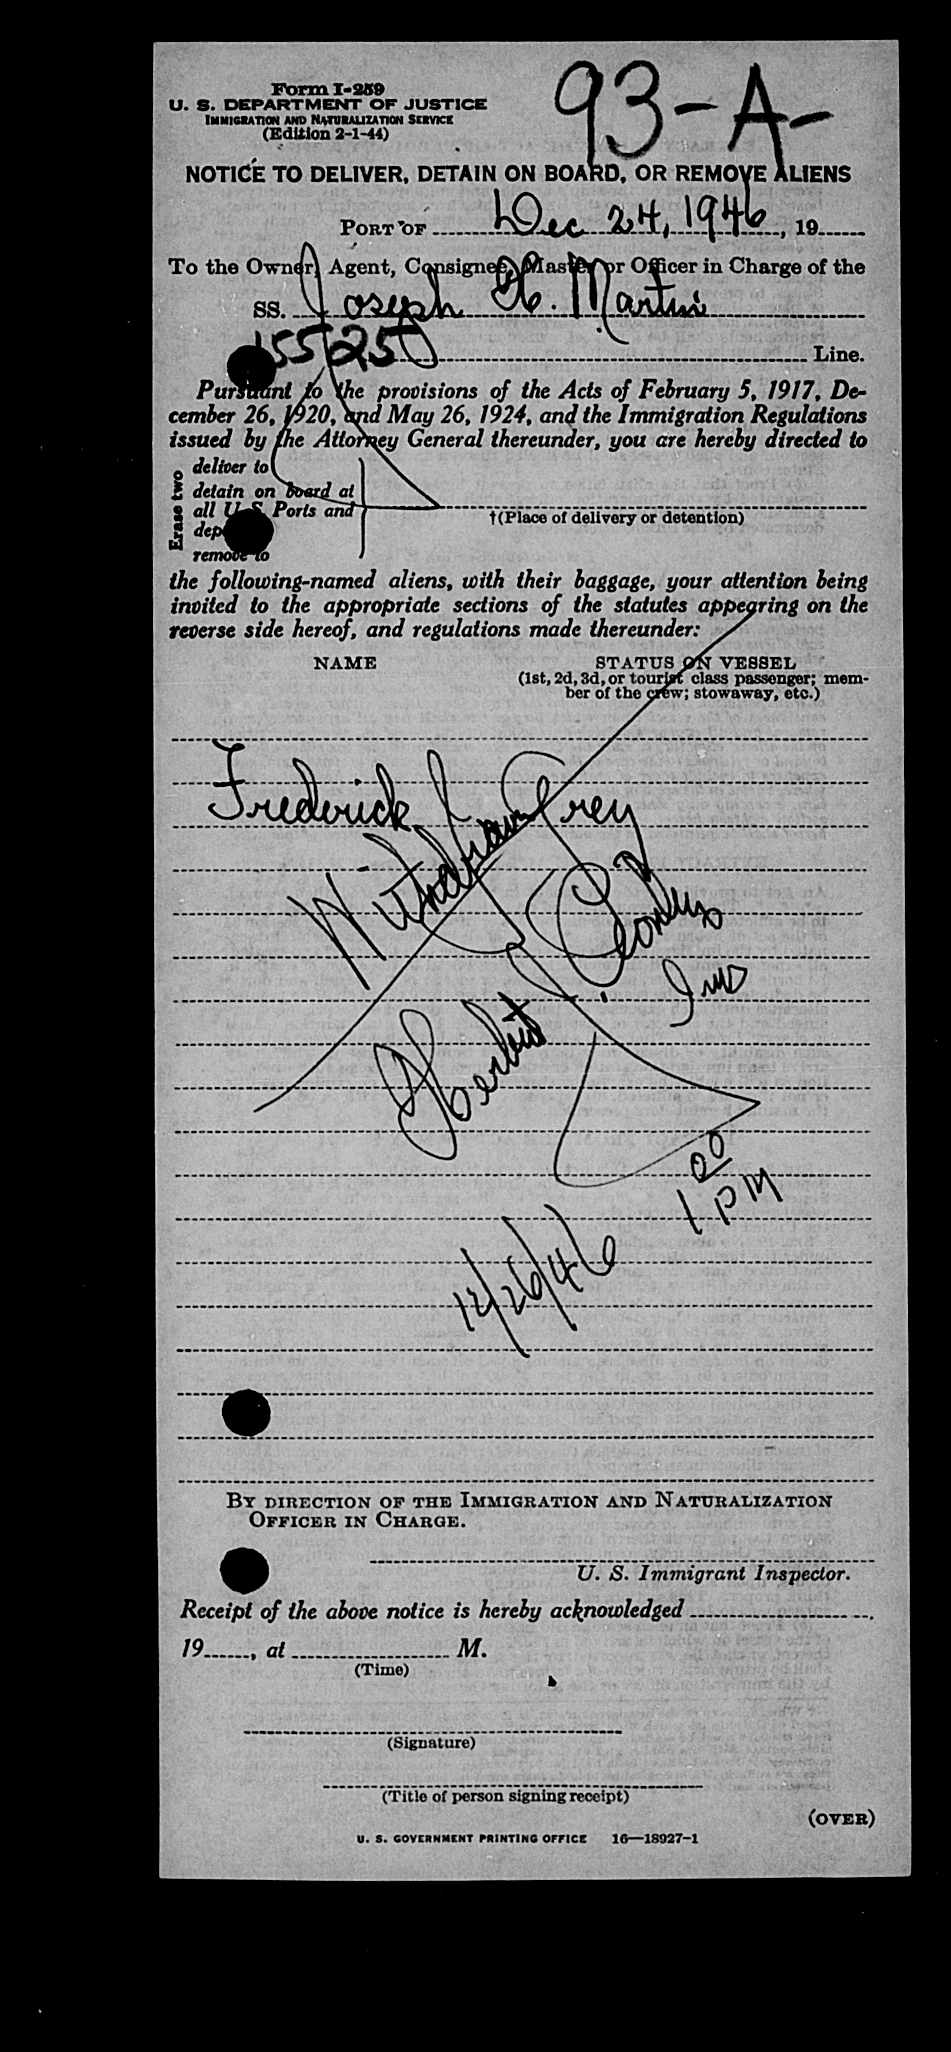 93-A-
Form I-259
U. S. DEPARTMENT OF JUSTICE
IMMIGRATION AND NATURALIZATION SERVICE
(Edition 2-1-44)
NOTICE TO DELIVER, DETAIN ON BOARD, OR REMOVE ALIENS
PORT OF Dec 24, 1946, 19
To the Owner, Agent, Consignee, Master or Officer in Charge of the
SS. Joseph H. Martin
155/250 Line.
Pursuant to the provisions of the Acts of February 5, 1917, De-
cember 26, 1920, and May 26, 1924, and the Immigration Regulations
issued by the Attorney General thereunder, you are hereby directed to
Erase two
deliver to
detain on board at
all U. S. Ports and
†(Place of delivery or detention)
remove to
the following-named aliens, with their baggage, your attention being
invited to the appropriate sections of the statutes appearing on the
reverse side hereof, and regulations made thereunder:
NAME STATUS ON VESSEL
(1st, 2d, 3d, or tourist class passenger; mem-
ber of the crew; stowaway, etc.)
Frederick Grey
Withdrawn
Herbert
Ins
1 00 PM
12/26/46
BY DIRECTION OF THE IMMIGRATION AND NATURALIZATION
OFFICER IN CHARGE.
U. S. Immigrant Inspector.
Receipt of the above notice is hereby acknowledged
19, at M.
(Time)
(Signature)
(Title of person signing receipt)
(OVER)
U. S. GOVERNMENT PRINTING OFFICE 16—18927-1